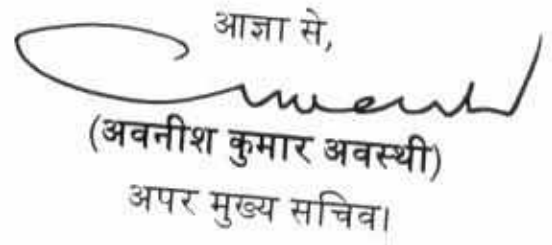 आज्ञा से,
(अवनीश कुमार अवस्थी)
अपर मुख्य सचिव।